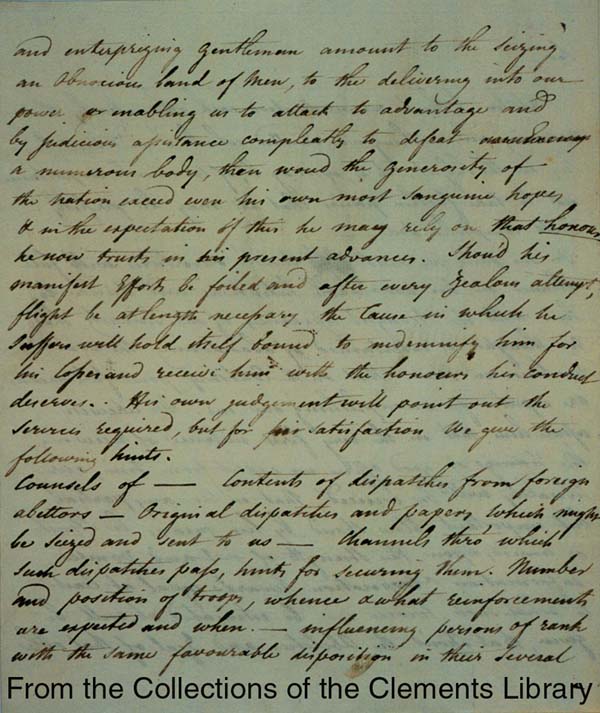 and enterprizing Gentleman amount to the seizing
an Obnocious band of Men, to the delivering into our
power or enabling us to attack to advantage and
by Judicious assistance compleatly to defeat
a numerous body, then woud the Generosity of
the nation exceed even his own most Sanguine hopes
& in the expectation of this he may rely on that honour
he now trusts in his present advances. Shou'd his
manifest Efforts be foiled and after every Zealous attempt,
flight be at length necessary the Cause in which he
Suffers will hold itself bound to indemnify him for
his losses and receive him with the honours his conduct
deserves. His own judgement will point out the
services required, but for his satisfaction We give the
following hints.
Counsels of — Contents of dispatches from foreign
abettors — Original dispatches and papers which might
be seized and sent to us — Channels thro' which
such dispatches pass, hints for securing them. Number
and position of troops, whence & what reinforcements
are expected and when. — influencing persons of rank
with the same favourable disposition in their several
From the Collections of the Clements Library